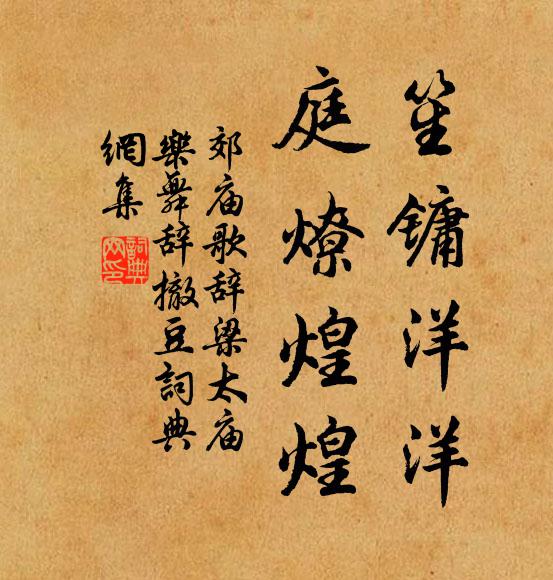 笙镛洋洋
庭燎煌煌
郊庙歌辞梁太庙
樂舞辞撤豆詞典
網集
詞典
網印